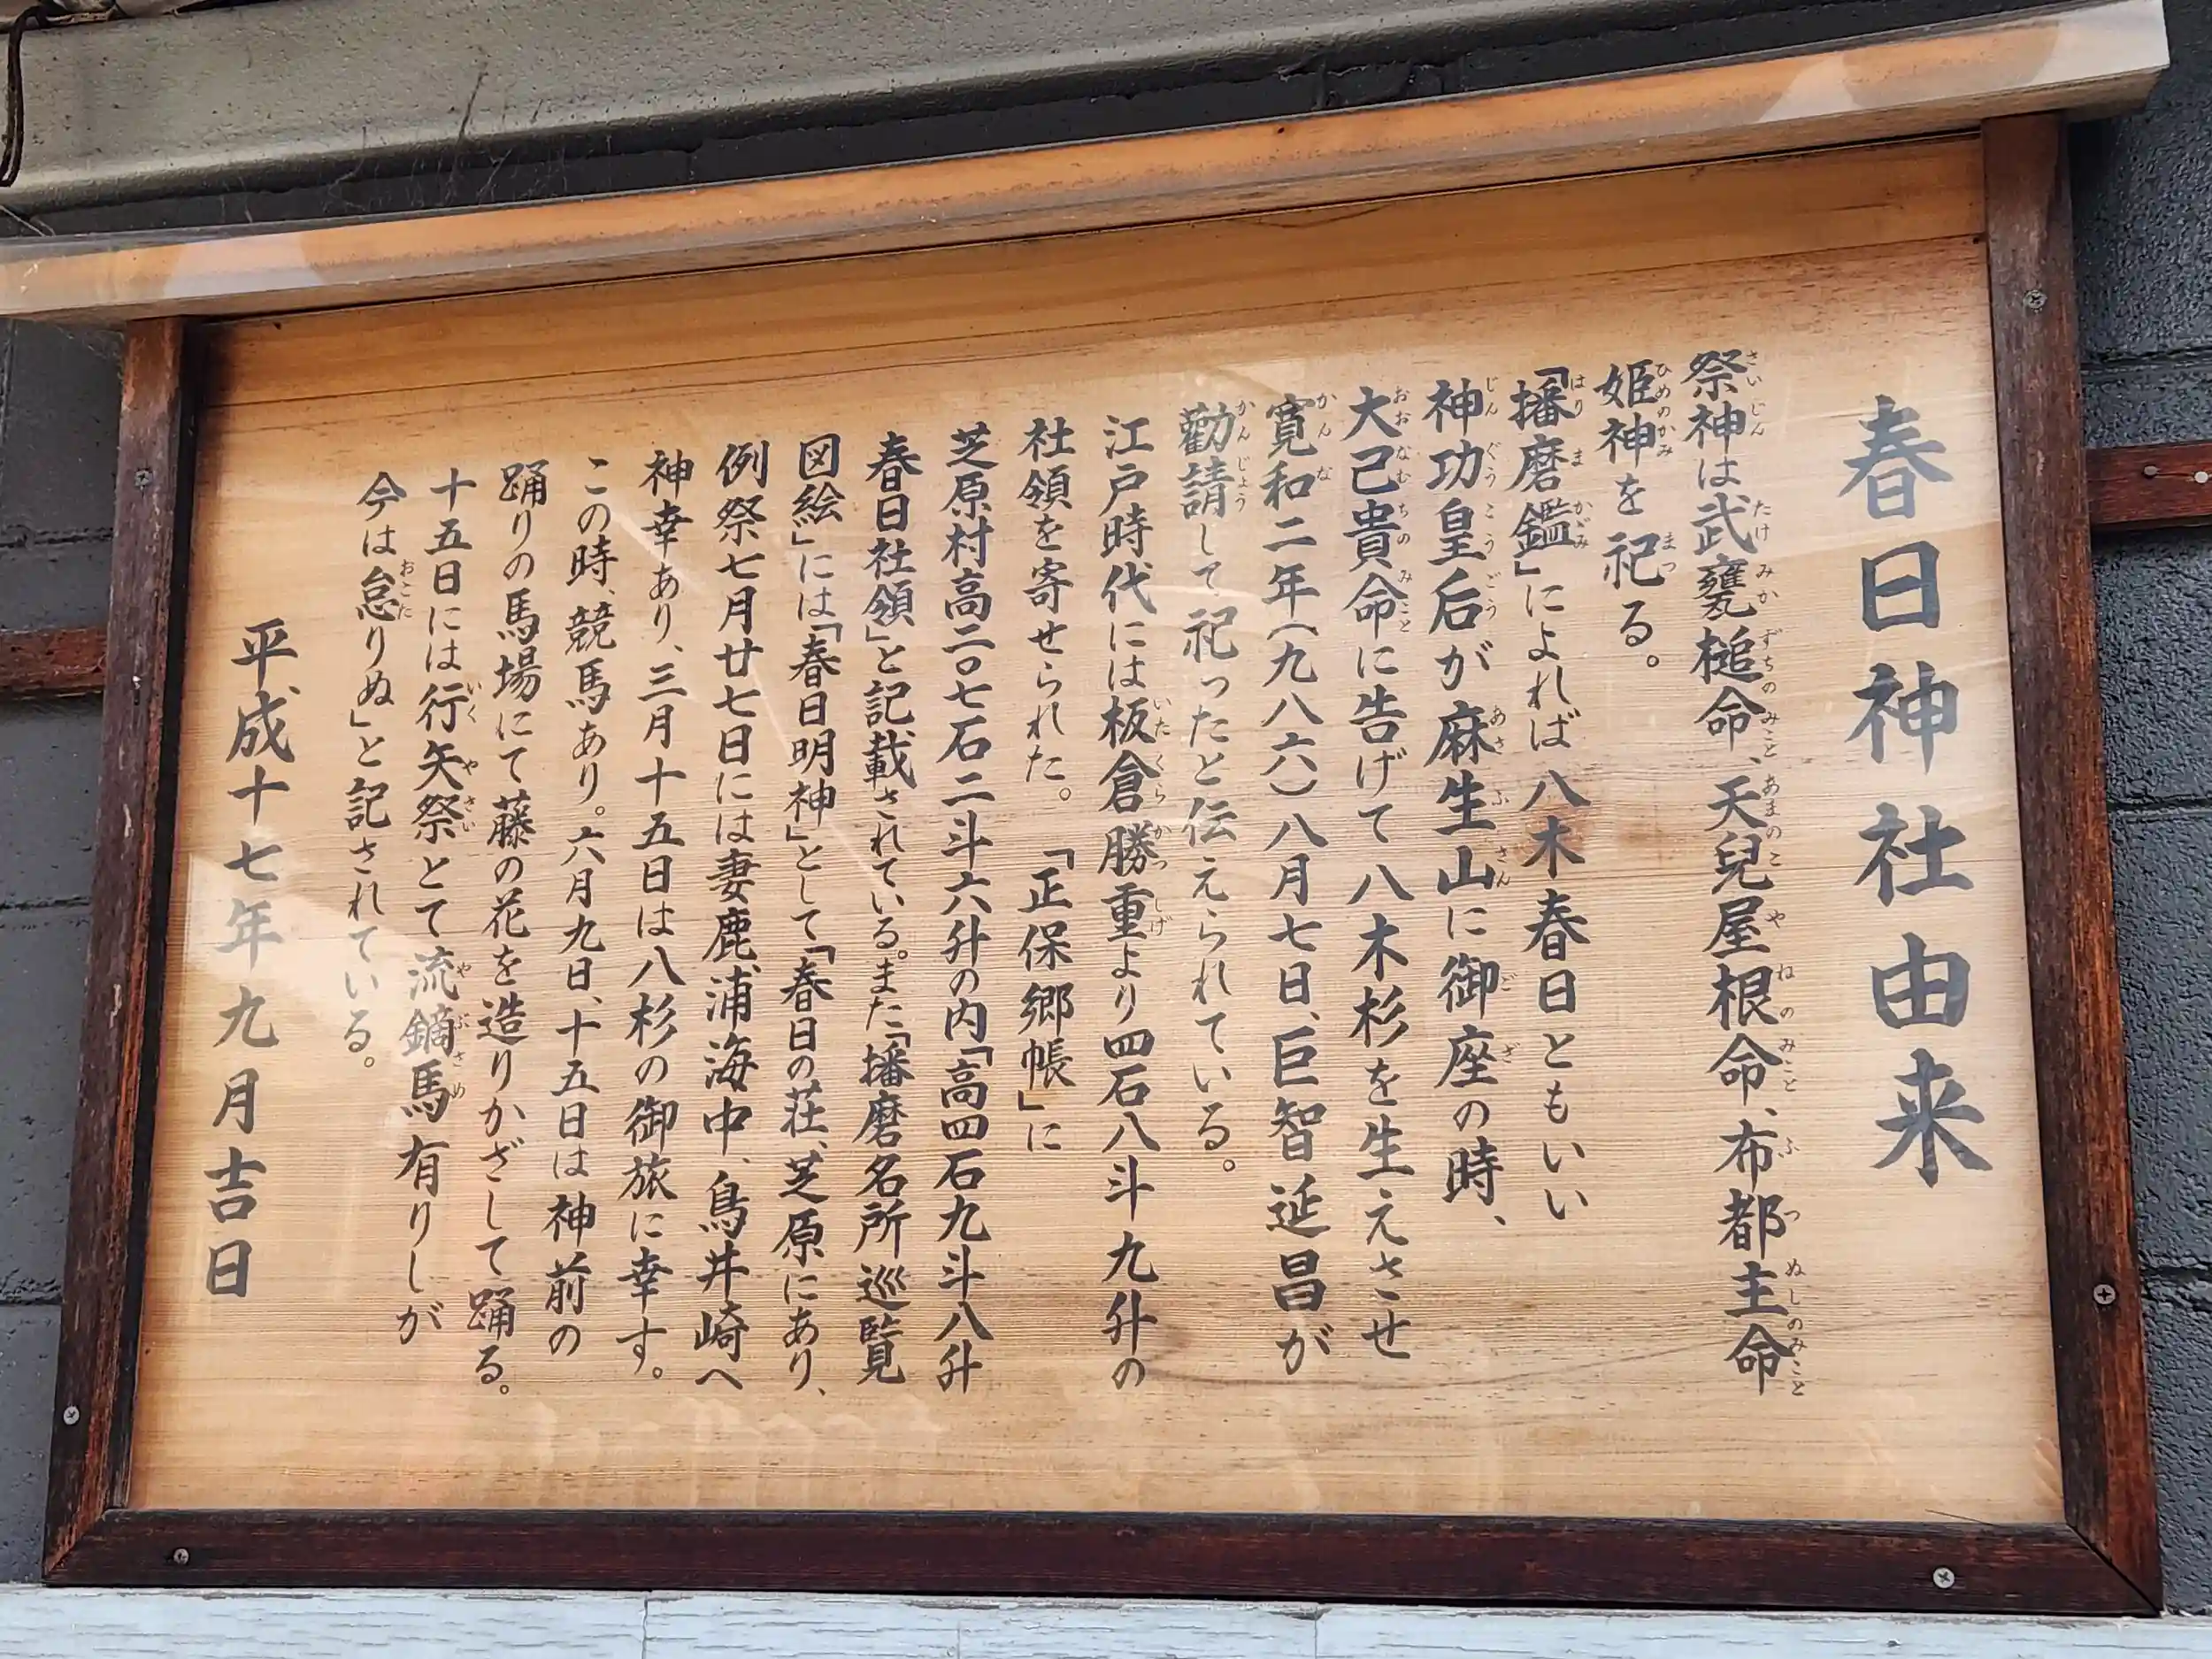 春日神社由来
祭神は武甕槌命、天兒屋根命、布都主命
姫神を祀る。
「播磨鑑」によれば八木春日ともいい
神功皇后が麻生山に御座の時、
大己貴命に告げて八木杉を生えさせ
寛和二年(九八六)八月七日、巨智延昌が
勸請して祀ったと伝えられている。
江戸時代には板倉勝重より四石八斗九升の
社領を寄せられた。「正保郷帳」に
芝原村高二〇七石二斗六升の内「高四石九斗八升
春日社領」と記載されている。また「播磨名所巡覧
図絵」には「春日明神」として「春日の荘、芝原にあり、
例祭七月廿七日には妻鹿浦海中、鳥井崎へ
神幸あり、三月十五日は八杉の御旅に幸す。
この時、競馬あり。六月九日、十五日は神前の
踊りの馬場にて藤の花を造りかざして踊る。
十五日には行矢祭とて流鏑馬有りしが
今は怠りぬ」と記されている。
平成十七年九月吉日